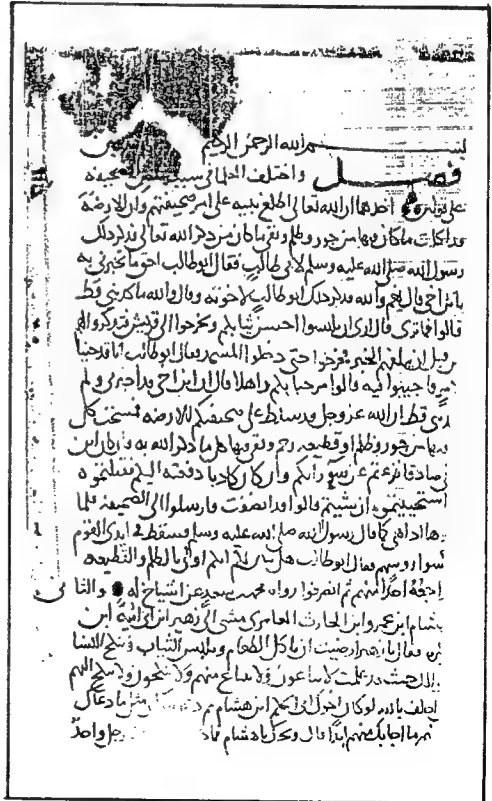 بسم الله الرحمن الرحيم
فصل واختلف العلماء في سبب نقض الصحيفة
على قولين احدهما ان الله تعالى اطلع نبيه على امر صحيفتهم وان الارضة
قد اكلت ما كان فيها من جور وظلم وبقى ما كان من ذكر الله تعالى فذكر ذلك
رسول الله صلى الله عليه وسلم لابى طالب فقال ابو طالب احق ما تخبرنى به
يا بن اخى قال نعم والله فذكر ذلك ابو طالب لاخوته وقال والله ما كذبنى قط
قالوا فما ترى قال ارى ان تلبسوا احسن ثيابكم وتخرجوا الى قريش فتذكروا لهم
قبل ان يبلغهم الخبر فخرجوا حتى دخلوا المسجد فقال ابو طالب انا قد جينا
فاجيبوا فيه قالوا مرحبا بكم واهلا قال ان ابن اخى قد اخبرنى ولم
قط ان الله عز وجل قد سلط على صحيفتكم الارضة فمسحت كل
فيها من جور وظلم او قطيعة رحم وبقى فيها كل ما ذكر الله به فان كان ابن
صادقا نزعتم عن سوء رايكم وان كان كاذبا دفعته اليكم فقتلتموه
استحييتموه ان شيتم قالوا قد انصفت فارسلوا الى الصحيفة فلما
اذا هى كما قال رسول الله صلى الله عليه وسلم فسقط فى ايدى القوم
رووسهم فقال ابو طالب هل تبين لكم انكم اولى بالظلم والقطيعة
احد منهم ثم انصرفوا رواه محمد بن سعد عن اشياخ له والثانى
هشام ابن عمرو ابن الحارث العامرى مشى الى زهير ابن ابى امية ابن
فقال يا زهير ارضيت ان تاكل الطعام وتلبس الثياب وتنكح النسا
حيث قد علمت لا يباعون ولا يبتاع منهم ولا ينكحون ولا ينكح اليهم
احلف بالله لو كان اخوال ابى الحكم ابن هشام ثم مثل ما دعاك
ما اجابك منهم ابدا قال ويحك يا هشام فماذا رجل واحد